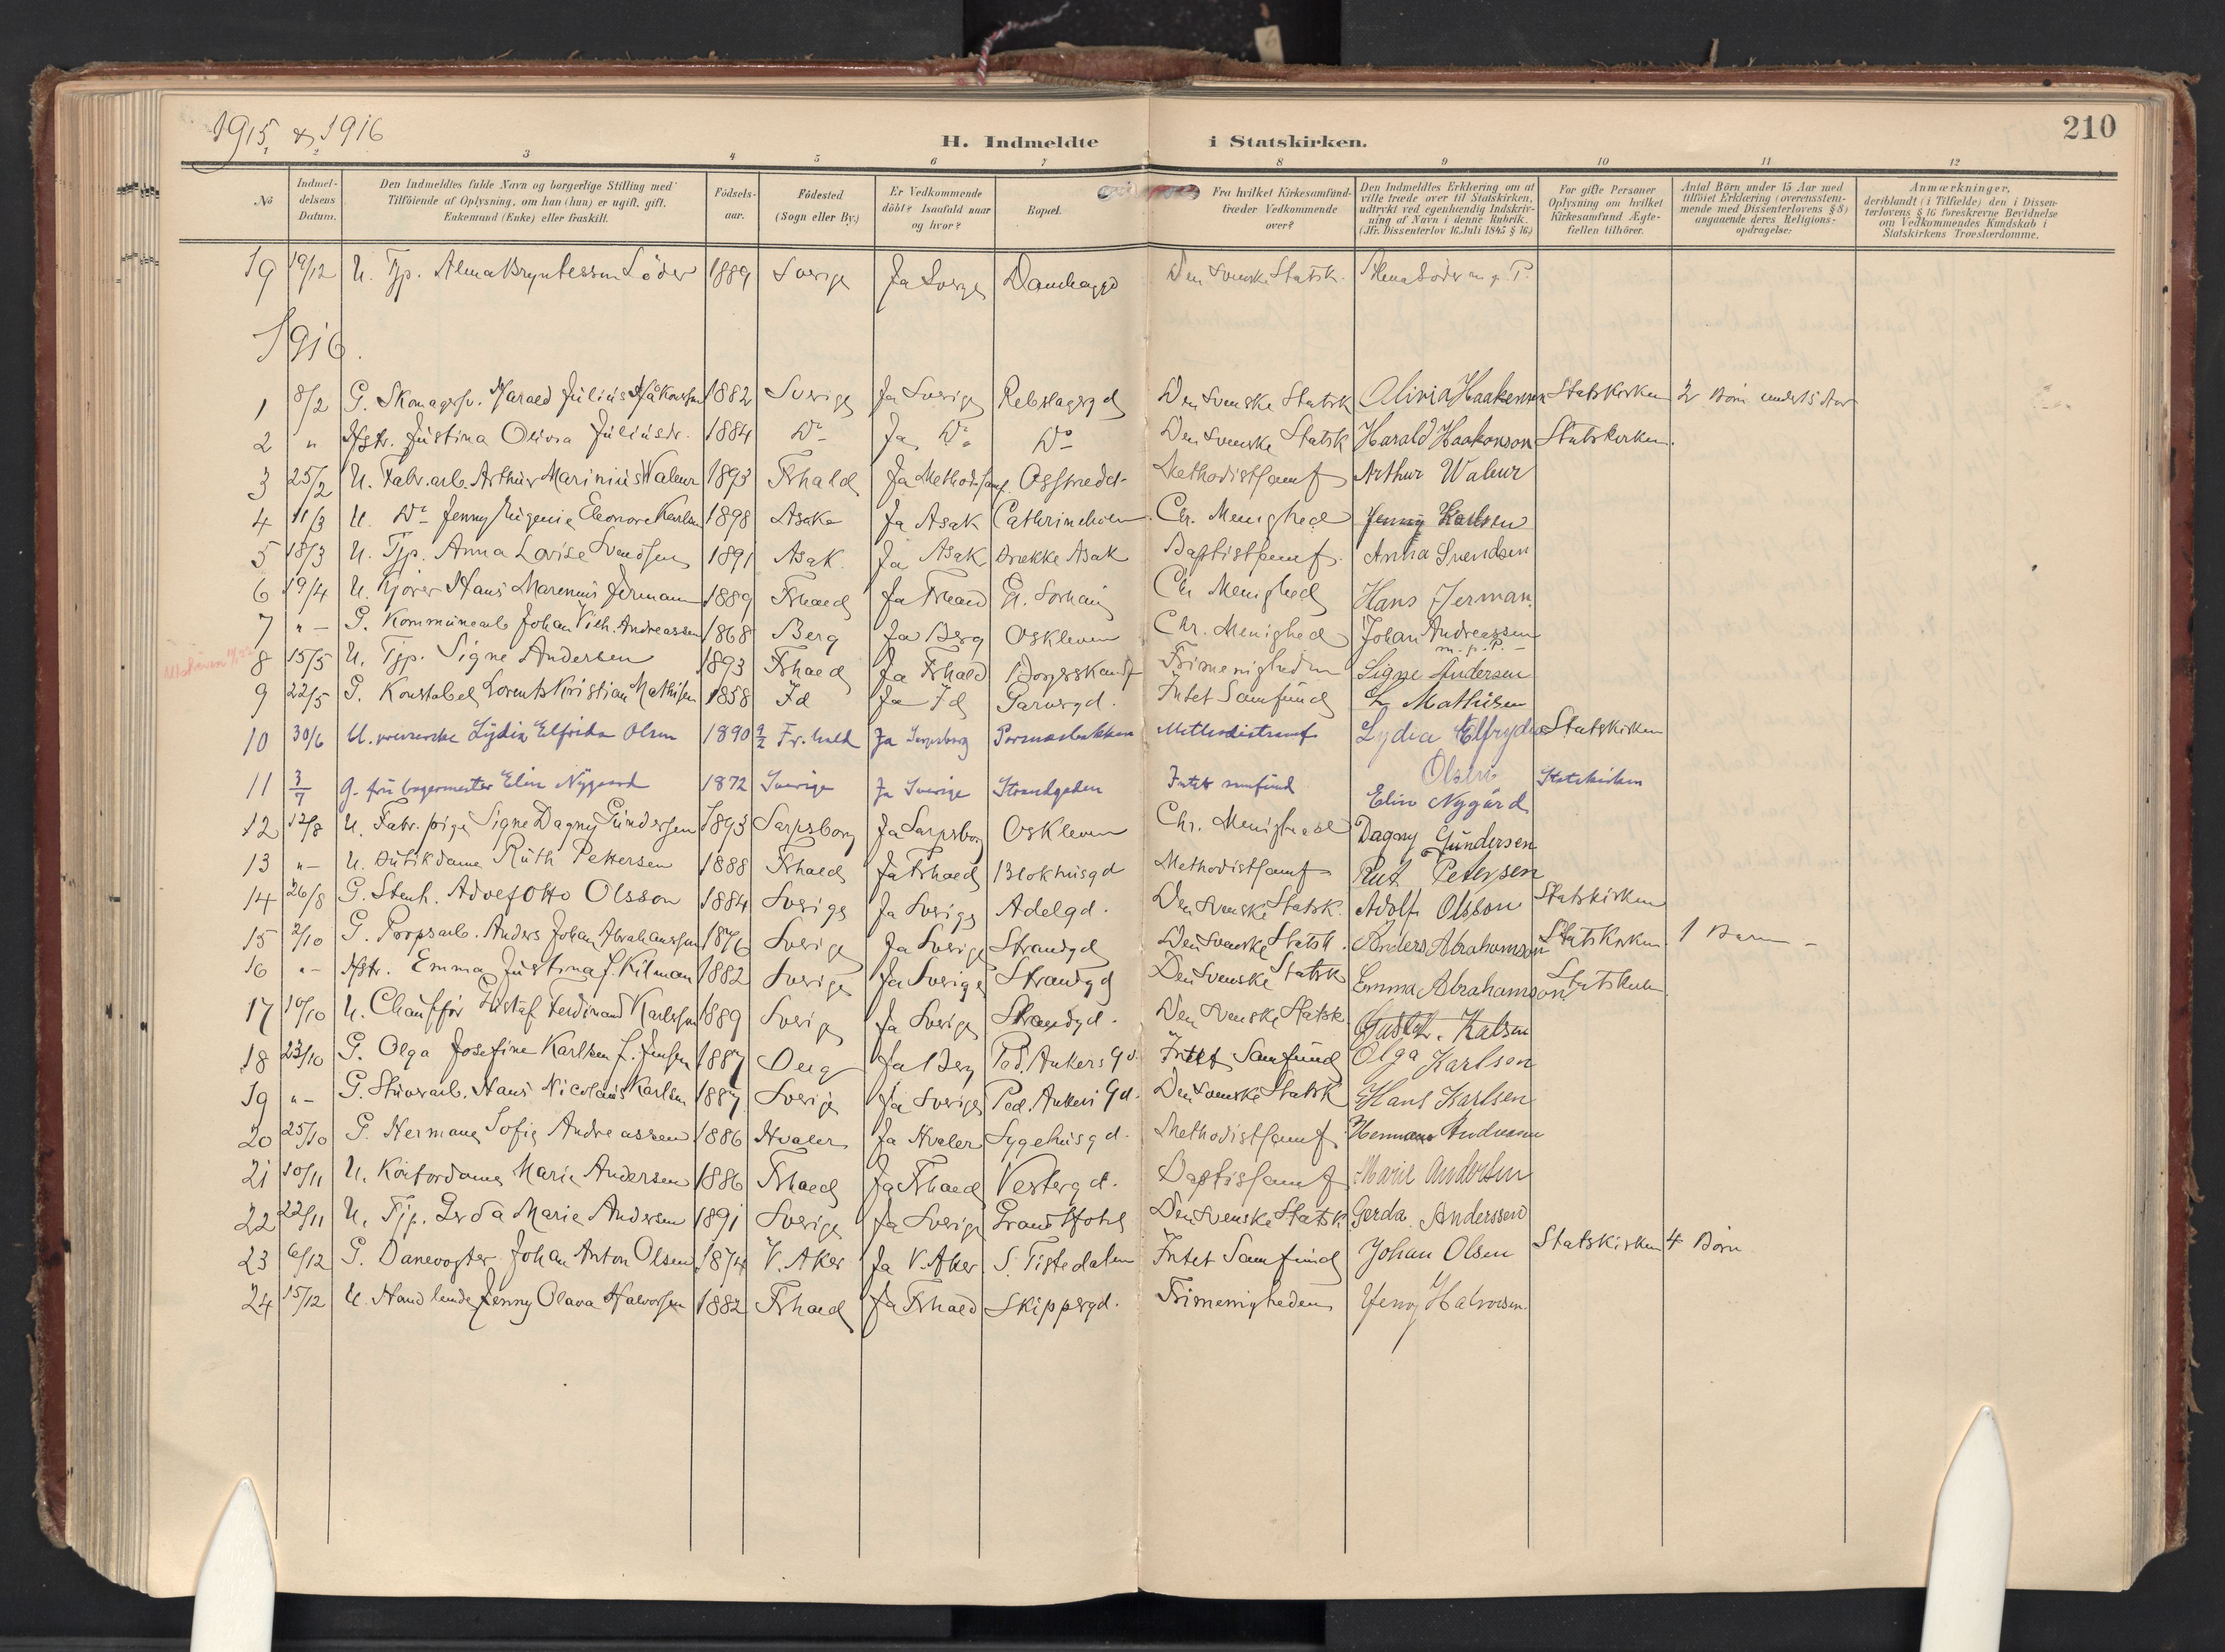 1915 & 1916
H. Indmeldte i Statskirken.
210
1 2 3 4 5 6 7 8 9 10 11 12
No
Indmeldelsens Datum.
Den Indmeldtes fulde Navn og borgerlige Stilling med Tilföiende af Oplysning, om han (hun) er ugift, gift, Enkemand (Enke) eller fraskilt.
Födselsaar.
Födested (Sogn eller By.)
Er Vedkommende döbt? Isaafald naar og hvor?
Bopæl.
Fra hvilket Kirkesamfund træder Vedkommende over?
Den Indmeldtes Erklæring om at ville træde over til Statskirken, udtrykt ved egenhændig Indskrivning af Navn i denne Rubrik. (Jfr. Dissenterlov 16. Juli 1845 § 16.)
For gifte Personer Oplysning om hvilket Kirkesamfund Ægtefællen tilhörer.
Antal Börn under 15 Aar med tilföiet Erklæring (overensstemmende med Dissenterlovens § 8) angaaende deres Religionsopdragelse.
Anmærkninger, deriblandt (i Tilfælde) den i Dissenterlovens § 16 foreskrevne Bevidnelse om Vedkommendes Kundskab i Statskirkens Troeslærdomme.
19 19/12 U. Tjp. Alma Bryntesson Löder 1889 Sverige Ja Sverige Damhaugd Den Svenske Statsk. Alma Löder m. p. P.
1916.
1 8/2 G. Skomagersv. Harald Julius Håkonsson 1882 Sverige Ja Sverige Rebslagergd Den Svenske Statsk Olivia Haakonsen Statskirken 2 Börn under 15 Aar
2 " Hstr. Justina Olivia Juliusdr. 1884 Do Ja Do Do Den Svenske Statsk Harald Haakonson Statskirken.
3 25/2 U. Fabr.arb. Arthur Marinius Waleur 1893 Frhald Ja Methodistsamf. Osstredet Methodistsamf Arthur Waleur
4 11/3 U. Do Jenny Eugenie Eleonore Karlsen 1898 Asak Ja Asak Cathrineholm Chr. Menighed Jenny Karlsen
5 18/3 U. Tjp. Anna Lovise Svendsen 1891 Asak. Ja Asak Brække Asak Baptistsamf. Anna Svendsen
6 19/4 U. Kjörer Hans Marenius Jermann 1889 Frhald Ja Frhald Gl. Sorhaug Chr Menighed Hans Jerman.
7 " – G. Kommunearb Johan Vilh. Andreassen 1868 Berg Ja Berg Oskleven Chr. Menighed Johan Andreassen m. p. P. –
8 15/5 U. Tjp. Signe Andersen 1893 Frhald Ja Frhald Borgerskansen Frimenigheden Signe Andersen
9 22/5 G. Konstabel Lorents Kristian Mathisen 1858 Id Ja Id Garvergd. Intet Samfund L Mathisen
10 30/6 U. Lydia Elfrida Olsen 1890 9/2 Fr.hald Ja Sarpsborg Methodistsamf Lydia Elfryda Olsen Statskirken
11 3/7 G. fru bagermester Elin Nygaard 1872 Sverige Ja Sverige Strandgaden Intet samfund Elin Nygård Statskirken
12 12/8 U. Fabr.pige Signe Dagny Gundersen 1893 Sarpsborg Ja Sarpsborg Oskleven Chr. Menighed Dagny Gundersen
13 " – U. Butikdame Ruth Pettersen 1888 Frhald Ja Frhald Blokhusgd Methodistsamf Rut Petersen
14 26/8 G. Stenh. Adolf Otto Olsson 1884 Sverige Ja Sverige Adelgd. Den Svenske Statsk. Adolf Olsson Statskirken
15 2/10 G. Propsarb. Anders Johan Abrahamsson 1876 Sverige Ja Sverige Strandgd Den Svenske Statsk. Anders Abrahamson Statskirken. 1 Barn –
16 " – Hstr. Emma Justina f. Kilman 1882 Sverige Ja Sverige Strandgd Den Svenske Statsk Emma Abrahamson Statskirken.
17 10/10 U. Chauffør Gustaf Ferdinand Karlsson 1889 Sverige Ja Sverige Strandgd. Den Svenske Statsk Gustaf. Kalsen
18 23/10 G. Olga Josefine Karlsen f. Jensen 1887 Berg Ja Berg Ped. Ankers Gd. Intet Samfund Olga Karlsen
19 " – G. Stuverarb. Hans Nicolaus Karlsen 1887 Sverige Ja Sverige Ped. Ankers Gd. Den Svenske Statsk Hans Karlsen
20 25/10 G. Hermana Sofie Andreassen 1886 Hvaler Ja Hvaler Sygehusgd. Methodistsamf. Hermana Andreasen
21 10/11 U. Kontordame Marie Andersen 1886 Frhald Ja Frhald Vestergd. Baptistsamf Marie Andersen
22 22/11 U. Tjp. Gerda Marie Andersen 1891 Sverige Ja Sverige Grand Hotel Den Svenske Statsk. Gerda Anderssen
23 6/12 G. Banevogter Johan Anton Olsen 1874 V. Aker Ja V. Aker S. Tistedalen Intet Samfund Johan Olsen Statskirken 4 Börn
24 15/12 U. Handlende Jenny Olava Halvorsen 1882 Frhald Ja Frhald Skippergd. Frimenigheden Jenny Halvorsen.